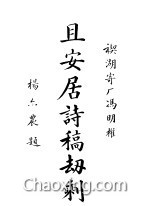 禊湖寄厂馮明權
且安居詩稿劫剩
楊六農題
Chaoxing.com